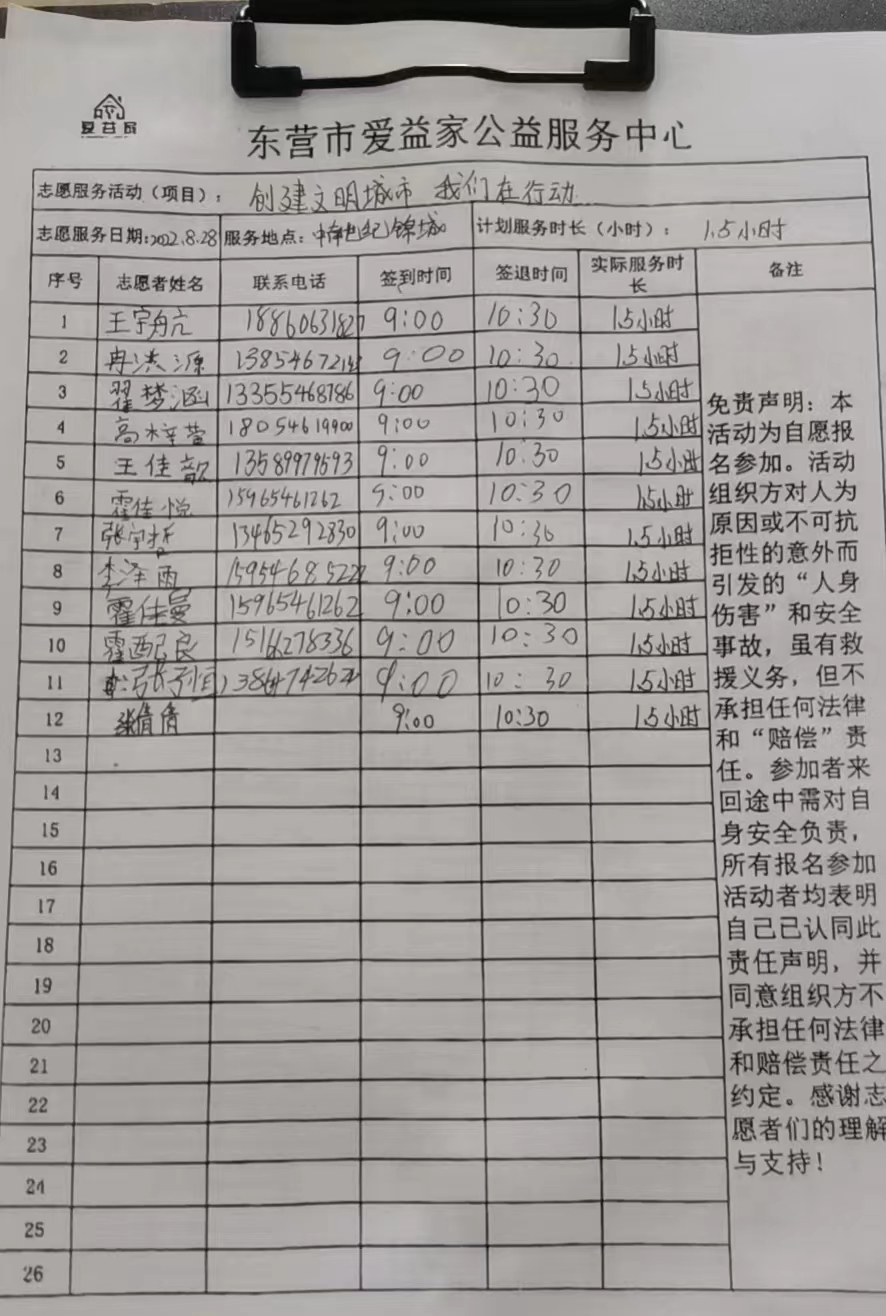 爱益家
东营市爱益家公益服务中心
志愿服务活动（项目）： 创建文明城市 我们在行动
志愿服务日期：2022.8.28 服务地点：中南世纪锦城 计划服务时长（小时）： 1.5小时
序号 志愿者姓名 联系电话 签到时间 签退时间 实际服务时长 备注
1 王宇航 9:00 10:30 1.5小时
2 冉洪源 9:00 10:30 1.5小时
3 翟梦涵 13355468786 9:00 10:30 1.5小时
4 高梓萱 18054619900 9:00 10:30 1.5小时
5 王佳歆 13589979593 9:00 10:30 1.5小时
6 霍佳悦 15965461262 9:00 10:30 1.5小时
7 张宇哲 13465292830 9:00 10:30 1.5小时
8 李泽雨 9:00 10:30 1.5小时
9 霍佳曼 15965461262 9:00 10:30 1.5小时
10 霍 良 9:00 10:30 1.5小时
11 9:00 10:30 1.5小时
12 张倩倩 9:00 10:30 1.5小时
13
14
15
16
17
18
19
20
21
22
23
24
25
26
免责声明：本
活动为自愿报
名参加。活动
组织方对人为
原因或不可抗
拒性的意外而
引发的“人身
伤害”和安全
事故，虽有救
援义务，但不
承担任何法律
和“赔偿”责
任。参加者来
回途中需对自
身安全负责，
所有报名参加
活动者均表明
自己已认同此
责任声明，并
同意组织方不
承担任何法律
和赔偿责任之
约定。感谢志
愿者们的理解
与支持！